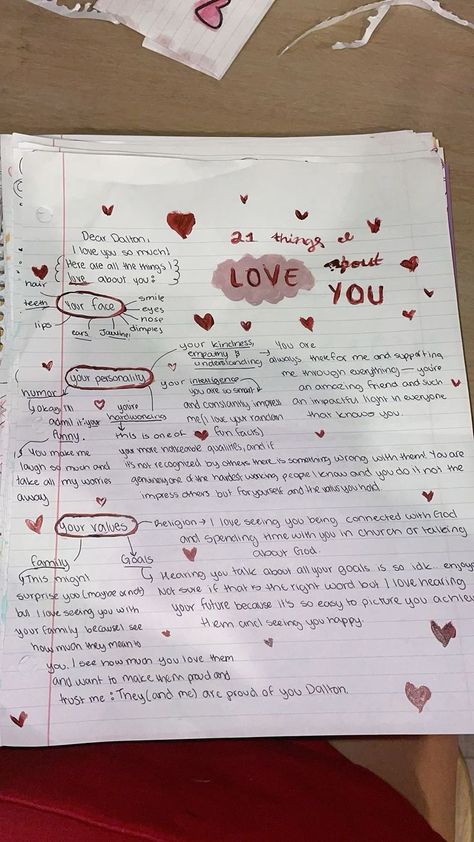 21 things I
LOVE about
YOU
Dear Dalton,
I love you so much!
Here are all the things I
love about you:
your face
hair
teeth
lips
ears
Jawline
dimples
nose
eyes
smile
your personality
your kindness,
empathy &
understanding → You are
always there for me and supporting
me through everything — you're
an amazing friend and such
an impactful light in everyone
that knows you.
your intelligence
you are so smart
and constantly impress
me (I love your random
fun facts)
humor
okay I'll
admit it your
funny.
You make me
laugh so much and
take all my worries
away
you're
hardworking
this is one of
your most noticeable qualities, and if
it's not recognized by others there is something wrong with them! You are
genuinely one of the hardest working people I know and you do it not the
impress others but for yourself and the values you hold.
your values
Religion → I love seeing you being connected with God
and spending time with you in church or talking
about God.
Family
This might
surprise you (maybe or not)
but I love seeing you with
your family because I see
how much they mean to
you. I see how much you love them
and want to make them proud and
trust me: They (and me) are proud of you Dalton.
Goals
Hearing you talk about all your goals is so idk.. enjoye
Not sure if that is the right word but I love hearing
your future because it's so easy to picture you achiev
them and seeing you happy.